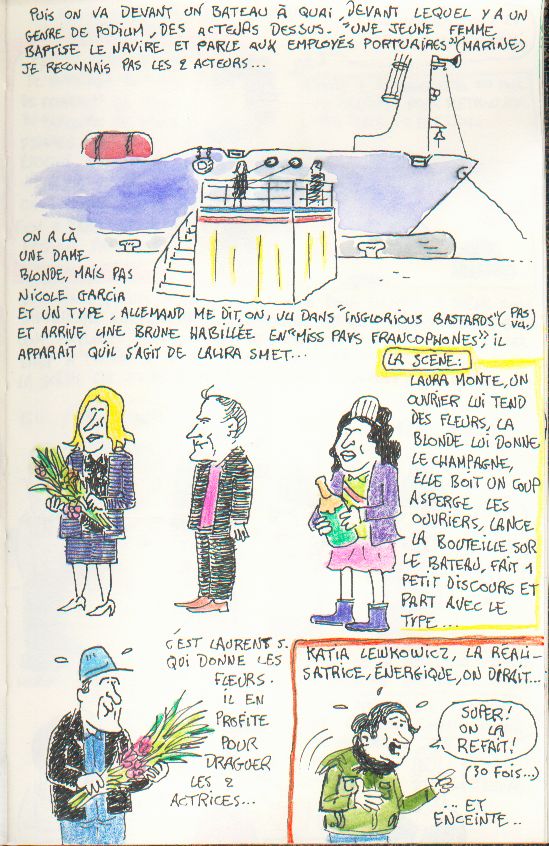 PUIS ON VA DEVANT UN BATEAU À QUAI, DEVANT LEQUEL Y A UN
GENRE DE PODIUM, DES ACTEURS DESSUS. "UNE JEUNE FEMME
BAPTISE LE NAVIRE ET PARLE AUX EMPLOYÉS PORTUAIRES" (MARINE)
JE RECONNAIS PAS LES 2 ACTEURS...
ON A LÀ
UNE DAME
BLONDE, MAIS PAS
NICOLE GARCIA
ET UN TYPE, ALLEMAND ME DIT-ON, VU DANS "INGLORIOUS BASTARDS" (PAS VU.)
ET ARRIVE UNE BRUNE HABILLÉE EN "MISS PAYS FRANCOPHONES", IL
APPARAIT QU'IL S'AGIT DE LAURA SMET...
LA SCÈNE:
LAURA MONTE, UN
OUVRIER LUI TEND
DES FLEURS, LA
BLONDE LUI DONNE
LE CHAMPAGNE,
ELLE BOIT UN COUP
ASPERGE LES
OUVRIERS, LANCE
LA BOUTEILLE SUR
LE BATEAU, FAIT 1
PETIT DISCOURS ET
PART AVEC LE
TYPE...
C'EST LAURENT S.
QUI DONNE LES
FLEURS.
IL EN
PROFITE
POUR
DRAGUER
LES 2
ACTRICES...
KATIA LEWKOWICZ, LA RÉALI-
SATRICE, ÉNERGIQUE, ON DIRAIT...
SUPER!
ON LA
REFAIT!
(30 FOIS...)
... ET
ENCEINTE..